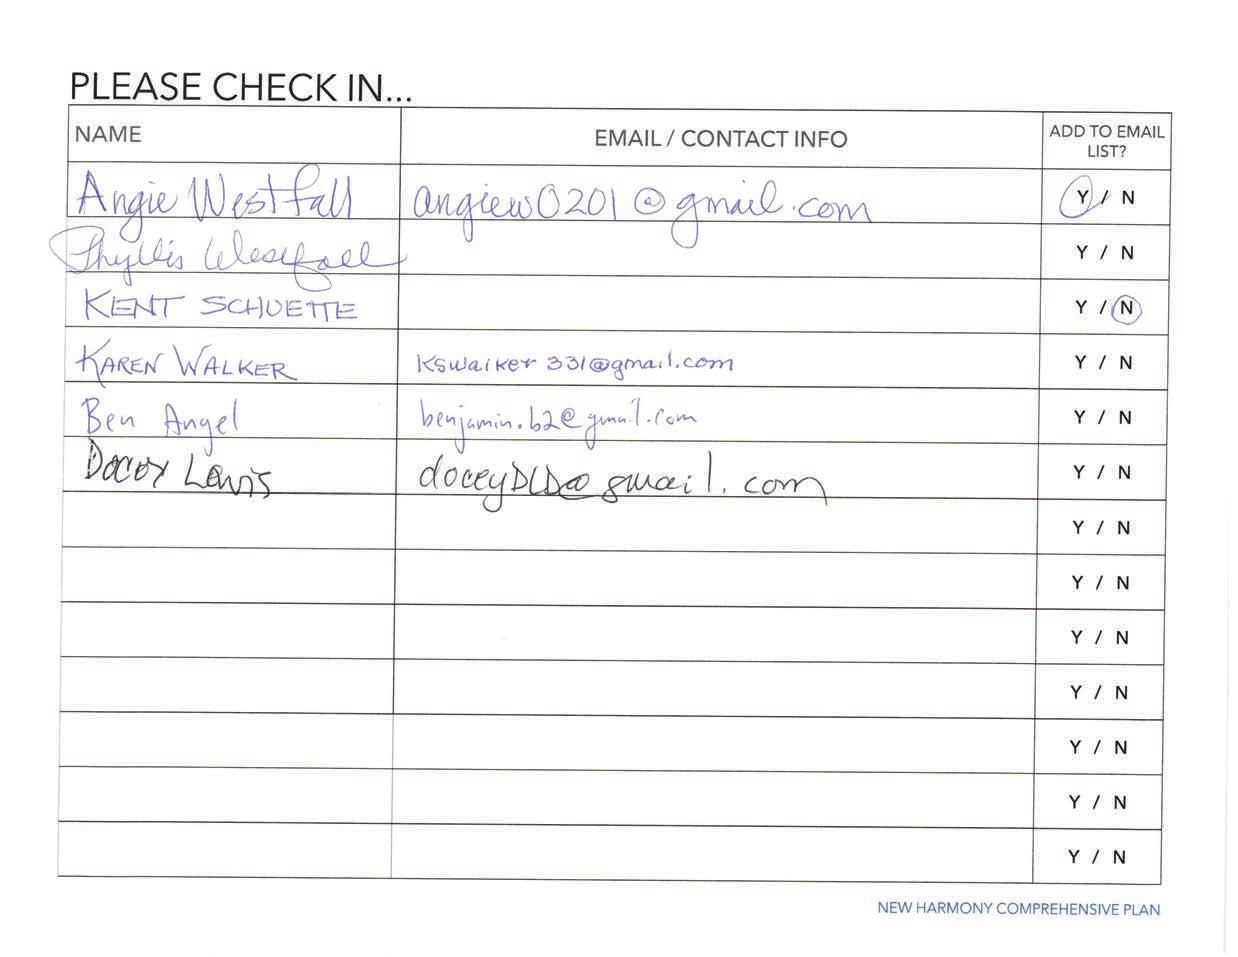 PLEASE CHECK IN...
NAME EMAIL / CONTACT INFO ADD TO EMAIL LIST?
Angie Westfall angiew0201@gmail.com Y / N
Phyllis Westfall Y / N
KENT SCHUETTE Y / N
KAREN WALKER kswalker331@gmail.com Y / N
Ben Angel benjamin.b2@gmail.com Y / N
Docey Lewis doceyDLD@gmail.com Y / N
Y / N
Y / N
Y / N
Y / N
Y / N
Y / N
Y / N
NEW HARMONY COMPREHENSIVE PLAN